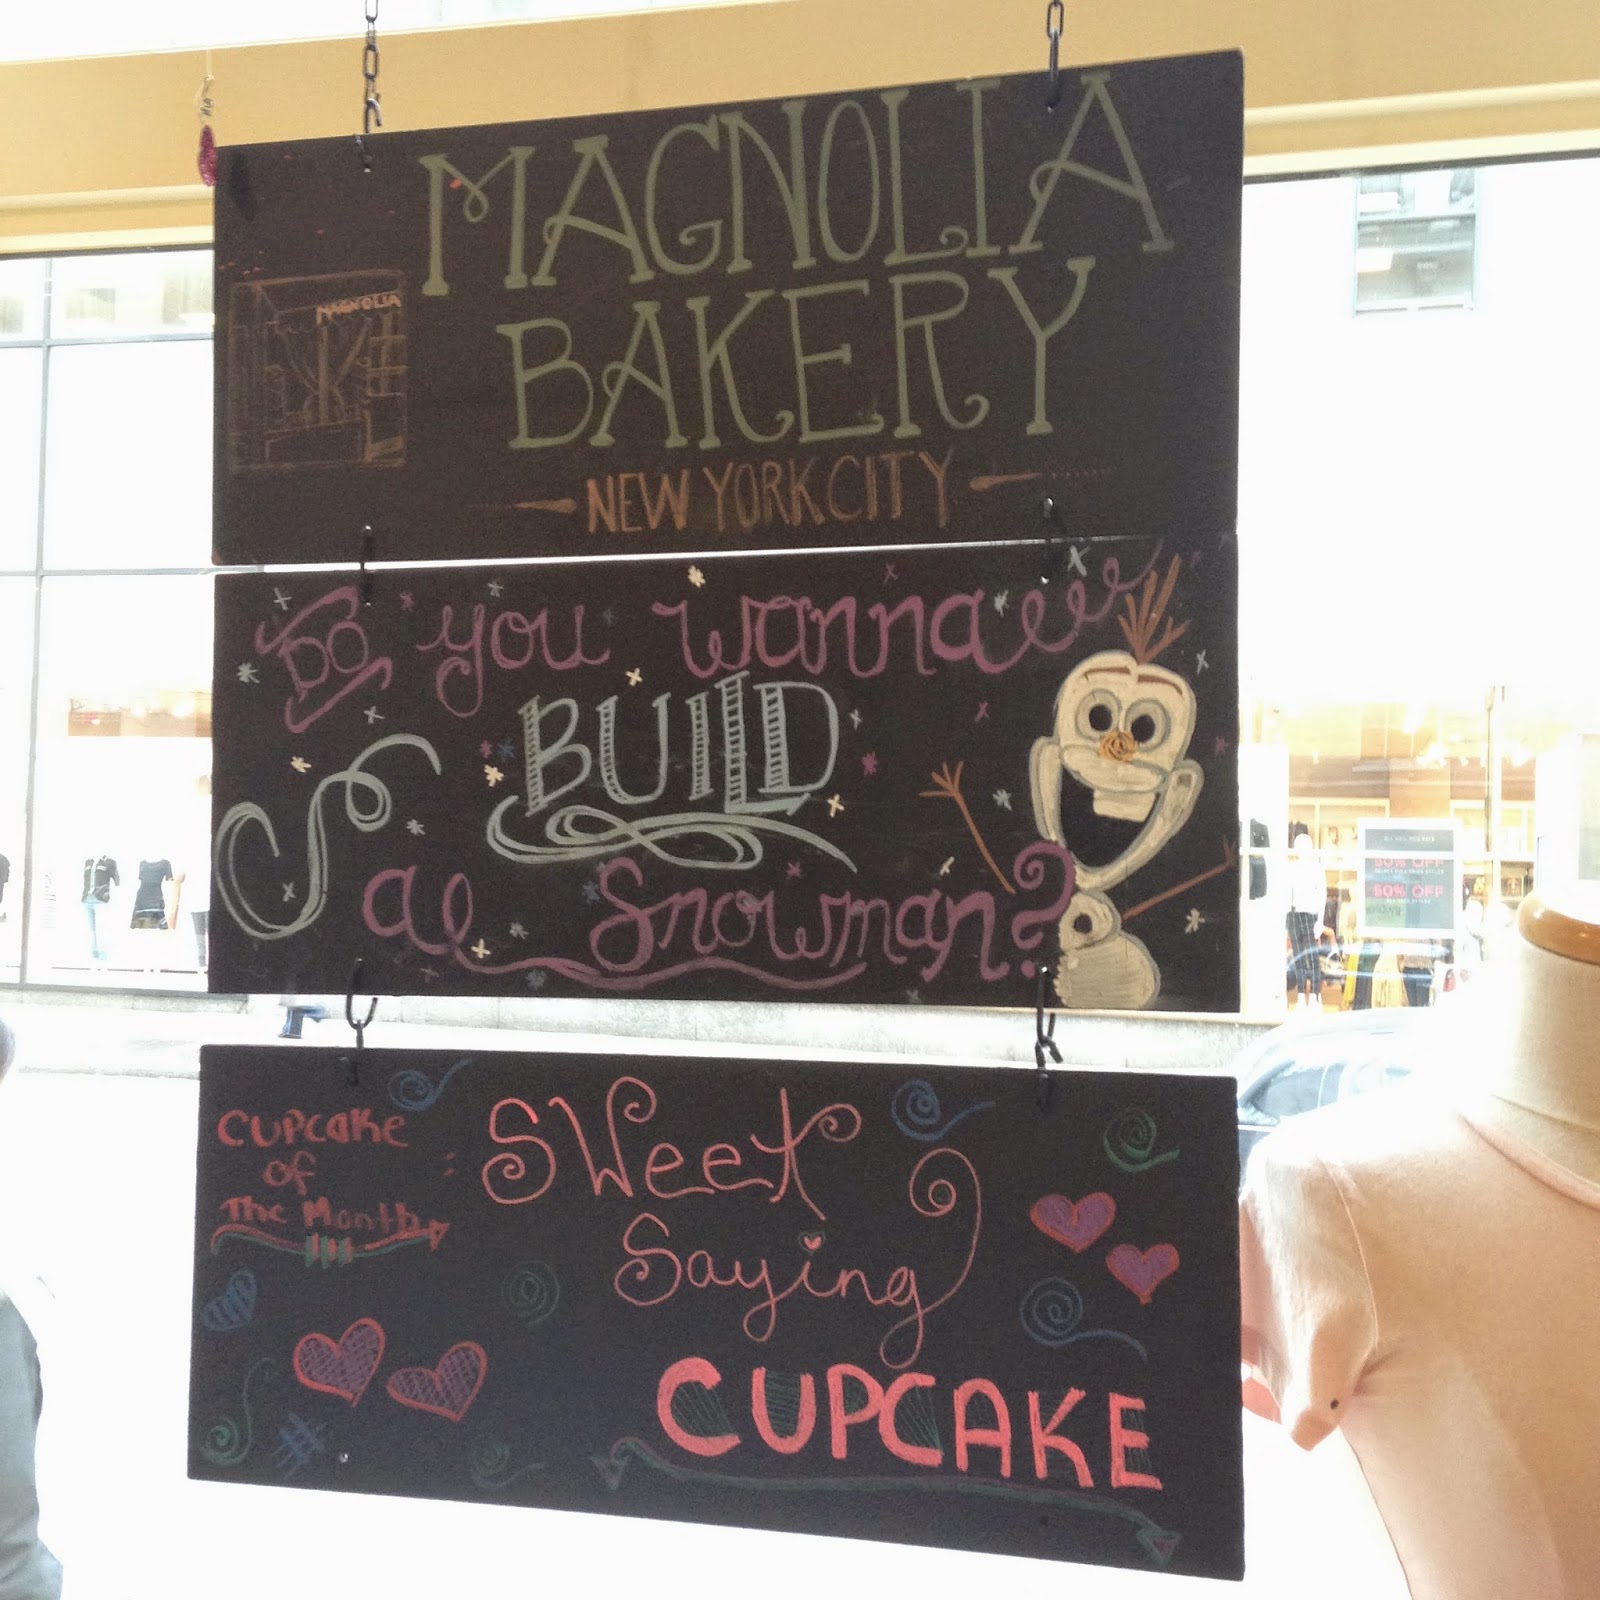 MAGNOLIA
MAGNOLIA
BAKERY
NEW YORK CITY
DO you wanna
BUILD
a Snowman?
CUPCAKE
of
The Month
:
SWeet
Saying
CUPCAKE
50% OFF
50% OFF